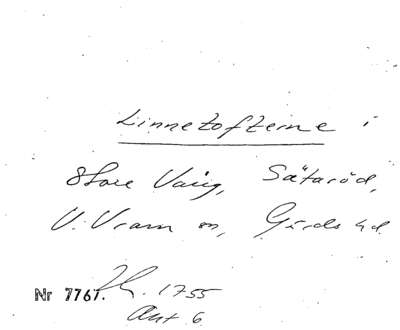 Linnetofterne i
Store Vång, Sätaröd,
V. Vram sn, Gärds hd.
Nr 7767. 1755
Akt 6